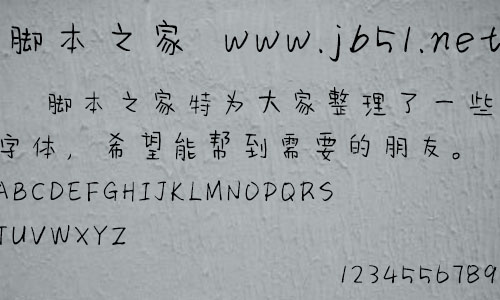 脚本之家 www.jb51.net
脚本之家特为大家整理了一些
字体，希望能帮到需要的朋友。
ABCDEFGHIJKLMNOPQRS
TUVWXYZ
12345556789